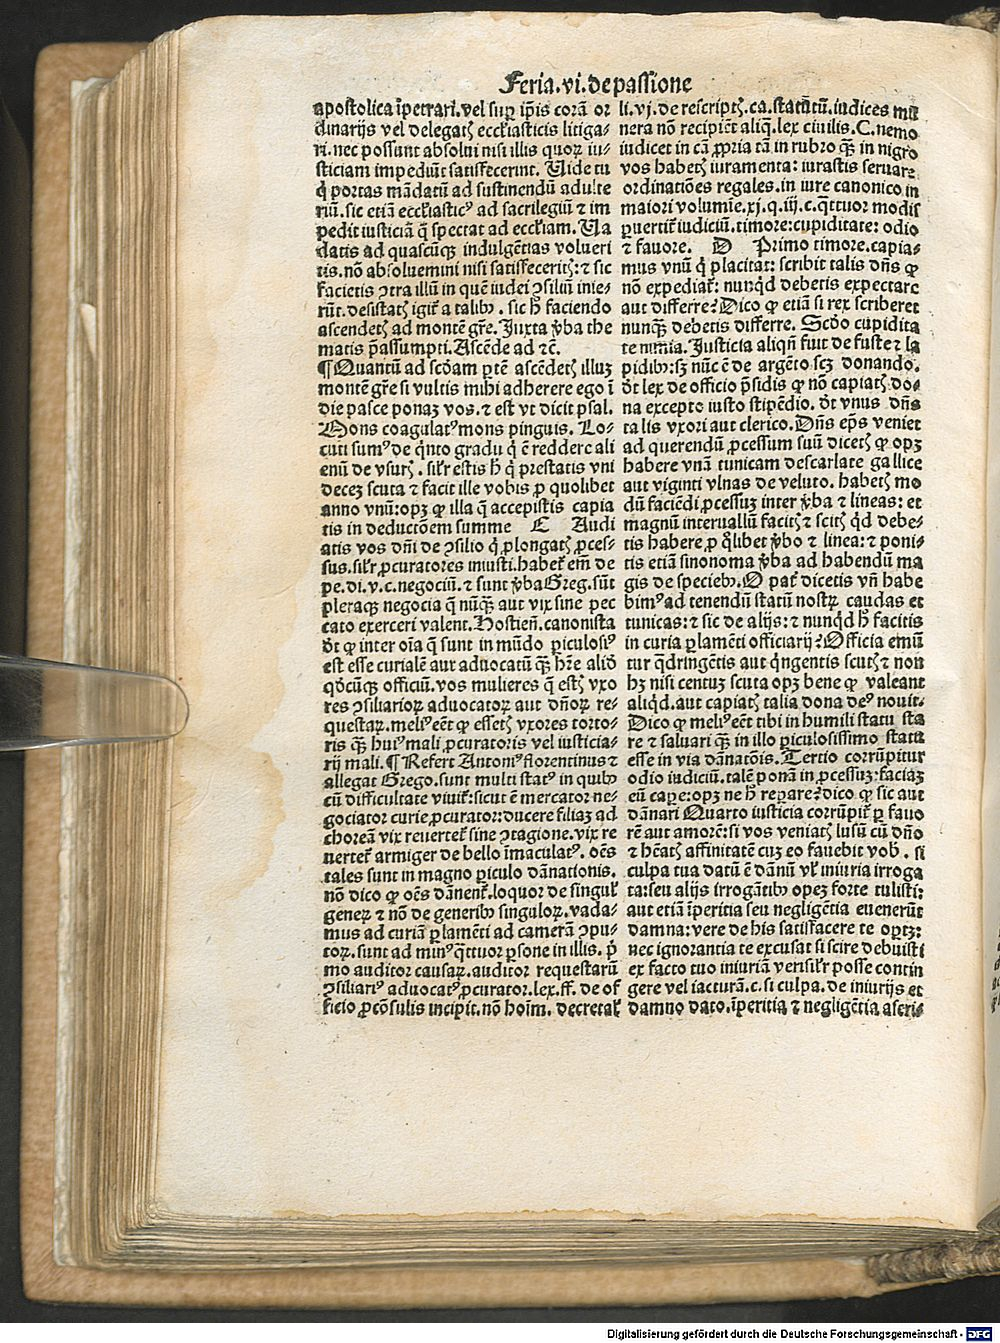 Feria.vi.de passione
apostolica īpetrari.vel suꝑ ip̄is corā or
dinarijs vel delegatꝭ eccl̄iasticis litiga-
ri.nec possunt absolui nisi illis quoꝝ iu-
sticiam impediūt satisfecerint. Uide tu
q̇ portas mādatū ad sustinendū adulte
riū.sic etiā eccl̄iasticꝰ ad sacrilegiū ⁊ im
pedit iusticiā q̄ spectat ad eccl̄iam. Ua
datis ad quascūqꝫ indulgētias volueri
tis.nō absoluemini nisi satisfeceritꝭ:⁊ sic
facietis ꝯtra illū in quē iudei ꝯsiliū inie-
rūt.desistatꝭ igit̄ a talibꝰ. sic h̄ faciendo
ascendetꝭ ad montē gr̄e. Iuxta v̄ba the
matis p̄assumpti. Ascēde ad ⁊c̄.
¶Quantū ad scd̄am ꝑtē ascēdetꝭ illuꝫ
montē gr̄e si vultis mihi adherere ego ī
die pasce ponaꝫ vos.⁊ est vt dicit psal.
Mons coagulatꝰ mons pinguis. Lo-
cuti sumꝰ de q̇nto gradu q̇ ē reddere ali
enū de vsurꝭ. sil̄r estis h̄ q̇ prestatis vni
deceꝫ scuta ⁊ facit ille vobis ꝓ quolibet
anno vnū:opꝫ ꝙ illa q̄ accepistis capia
tis in deductōem summe C Audi
atis vos dn̄i de ꝯsilio q̇ ꝓlongatꝭ ꝓces-
sus.sil̄r ꝓcuratores iniusti.habet̄ em̄ de
pe.di.v.c.negociū.⁊ sunt v̄ba Greg.sūt
pleraqꝫ negocia q̄ nūqꝫ aut vix sine pec
cato exerceri valent.Hostien̄.canonista
dt̄ ꝙ inter oīa q̄ sunt in mūdo ꝑiculosiꝰ
est esse curialē aut aduocatū qꝫ hr̄e aliō
qd̄cūqꝫ officiū.vos mulieres q̄ estꝭ vxo
res ꝯsiliarioꝝ aduocatoꝝ aut dn̄oꝝ re-
questaꝝ.meliꝰ eēt ꝙ essetꝭ vxores torto-
ris qꝫ huiꝰ mali ꝓcuratoris vel iusticia-
rij mali.¶Refert Antoniꝰ florentinus ⁊
allegat Grego.sunt multi statꝰ in quibꝰ
cū difficultate viuit̄:sicut ē mercator ne-
gociator curie ꝓcurator:ducere filiaꝫ ad
choreā vix reuertet̄ sine ꝯtagione.vix re
uertet̄ armiger de bello īmaculatꝰ. oēs
tales sunt in magno ꝑiculo dānationis.
nō dico ꝙ oēs dānent̄.loquor de singul̄
geneꝝ ⁊ nō de generibꝰ singuloꝝ.vada-
mus ad curiā ꝑlamēti ad camerā ꝯpu-
toꝝ.sunt ad minꝰ q̄ttuor ꝑsone in illis. p̄
mo auditor causaꝝ.auditor requestarū
ꝯsiliariꝰ aduocatꝰ ꝓcurator.lex.ff. de of
ficio ꝓcōsulis incipit.nō hoīm. decretal̄
li.vj.de rescriptꝭ.ca.statutū.iudices mu
nera nō recipiēt aliq̄.lex ciuilis.C.nemo
iudicet in cā ꝓpria tā in rubro qꝫ in nigro
vos habetꝭ iuramenta: iurastis seruare
ordinatiōes regales.in iure canonico in
maiori volumīe.xj.q.iij.c.q̄ttuor modis
ꝑuertit̄ iudiciū.timore:cupiditate: odio
⁊ fauore. D Primo timore.capia-
mus vnū q̇ placitat: scribit talis dn̄s ꝙ
nō expediat̄: nunqd̄ debetis expectare
aut differre? Dico ꝙ etiā si rex scriberet
nunqꝫ debetis differre. Scd̄o cupidita
te nimia. Iusticia aliqn̄ fuit de fuste ⁊ la
pidibꝰ:sꝫ nūc ē de argēto scꝫ donando.
dt̄ lex de officio p̄sidis ꝙ nō capiatꝭ do-
na excepto iusto stipēdio. dt̄ vnus dn̄s
talis vxori aut clerico. Dn̄s ep̄s veniet
ad querendū ꝓcessum suū dicetꝭ ꝙ opꝫ
habere vnā tunicam descarlate gallice
aut viginti vlnas de veluto. habetꝭ mo
dū faciēdi ꝓcessuꝫ inter v̄ba ⁊ lineas: et
magnū interuallū facitꝭ ⁊ scitꝭ qd̄ debe-
tis habere ꝓ qlibet v̄bo ⁊ linea: ⁊ poni-
tis etiā sinonoma v̄ba ad habendū ma
gis de speciebꝰ. O pat̄ dicetis vn̄ habe
bimꝰ ad tenendū statū nostꝝ caudas et
tunicas: ⁊ sic de alijs: ⁊ nunqd̄ h̄ facitis
in curia ꝑlamēti officiarij? Officia emū
tur q̄dringētis aut q̇ngentis scutꝭ ⁊ non
hꝫ nisi centuꝫ scuta opꝫ bene ꝙ valeant
aliqd̄.aut capiatꝭ talia dona deꝰ nouit.
Dico ꝙ meliꝰ eēt tibi in humili statu sta
re ⁊ saluari qꝫ in illo ꝑiculosissimo statu
esse in via dānatōis. Tertio corrūpitur
odio iudiciū.talē ponā in ꝓcessuꝫ:faciaꝫ
eū cape:opꝫ ne h̄ reparet dico ꝙ sic aut
dānari Quarto iusticia corrūpit̄ ꝑ fauo
rē aut amorē:si vos veniatꝭ lusū cū dn̄o
⁊ hēatꝭ affinitatē cuꝫ eo fauebit vob̄. si
culpa tua datū ē dānū vl̄ iniuria irroga
ta:seu alijs irrogātibꝰ opeꝫ forte tulisti:
aut etiā īperitia seu negligētia euenerūt
damna:vere de his satisfacere te oportꝫ:
nec ignorantia te excusat si scire debuisti
ex facto tuo iniuriā verisil̄r posse contin
gere vel iacturā.c.si culpa.de iniurijs et
damno dato.īperitia ⁊ negligētia ascri-
Digitalisierung gefördert durch die Deutsche Forschungsgemeinschaft - DFG